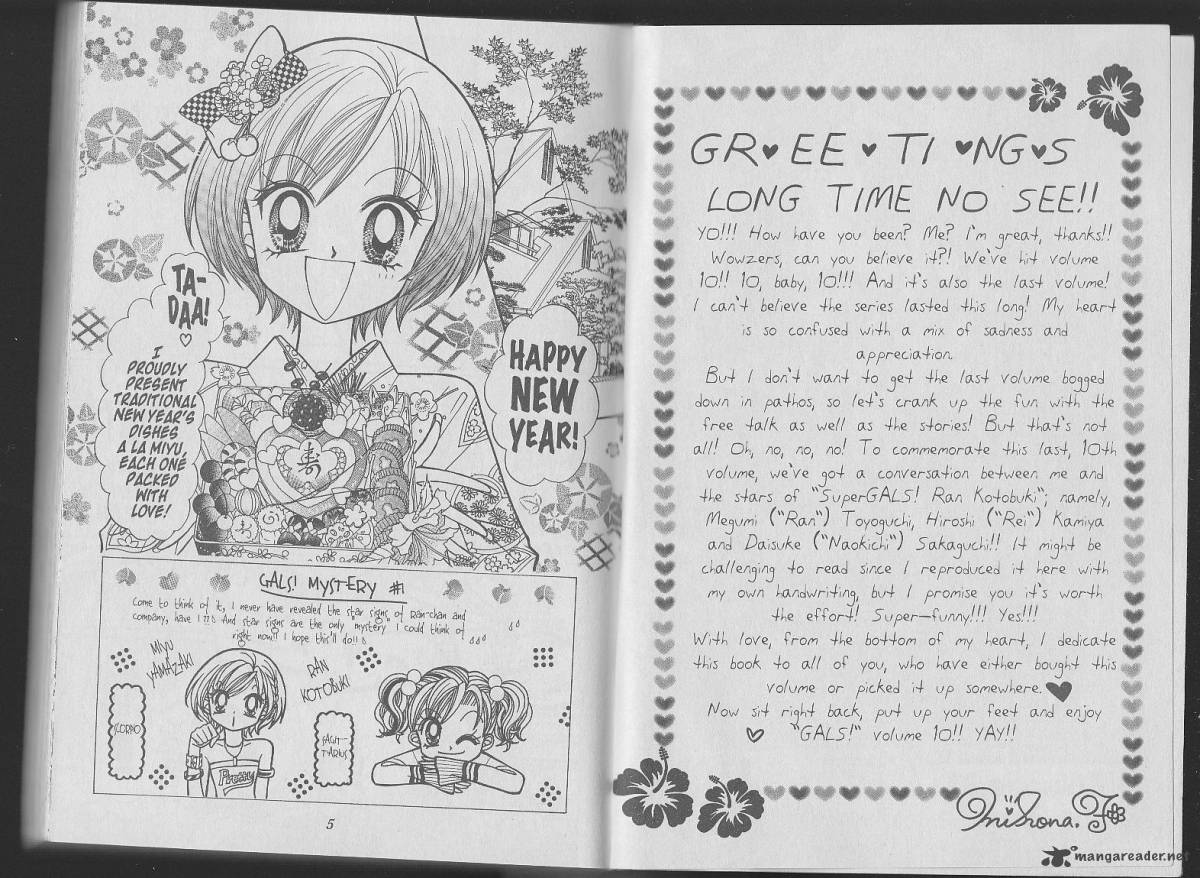 TA-
DAA!
I
PROUDLY
PRESENT
TRADITIONAL
NEW YEAR'S
DISHES
A LA MIYU,
EACH ONE
PACKED
WITH
LOVE!
寿
HAPPY
NEW
YEAR!
GALS! MYSTERY #1
Come to think of it, I never have revealed the star signs of Ran-chan and
company, have I?! And star signs are the only "mystery" I could think of
right now!! I hope this'll do!!
MIYU
YAMAZAKI
SCORPIO
Pretty
RAN
KOTOBUKI
SAGIT-
TARIUS
5
GR♥EE♥TI♥NG♥S
LONG TIME NO SEE!!
YO!!! How have you been? Me? I'm great, thanks!!
Wowzers, can you believe it?! We've hit volume
10!! 10, baby, 10!!! And it's also the last volume!
I can't believe the series lasted this long! My heart
is so confused with a mix of sadness and
appreciation.
But I don't want to get the last volume bogged
down in pathos, so let's crank up the fun with the
free talk as well as the stories! But that's not
all! Oh, no, no, no! To commemorate this last, 10th
volume, we've got a conversation between me and
the stars of "SuperGALS! Ran Kotobuki"; namely,
Megumi ("Ran") Toyoguchi, Hiroshi ("Rei") Kamiya
and Daisuke ("Naokichi") Sakaguchi!! It might be
challenging to read since I reproduced it here with
my own handwriting, but I promise you it's worth
the effort! Super-funny!!! Yes!!!
With love, from the bottom of my heart, I dedicate
this book to all of you, who have either bought this
volume or picked it up somewhere.♥
Now sit right back, put up your feet and enjoy
♡ "GALS!" volume 10!! YAY!!
mangareader.net